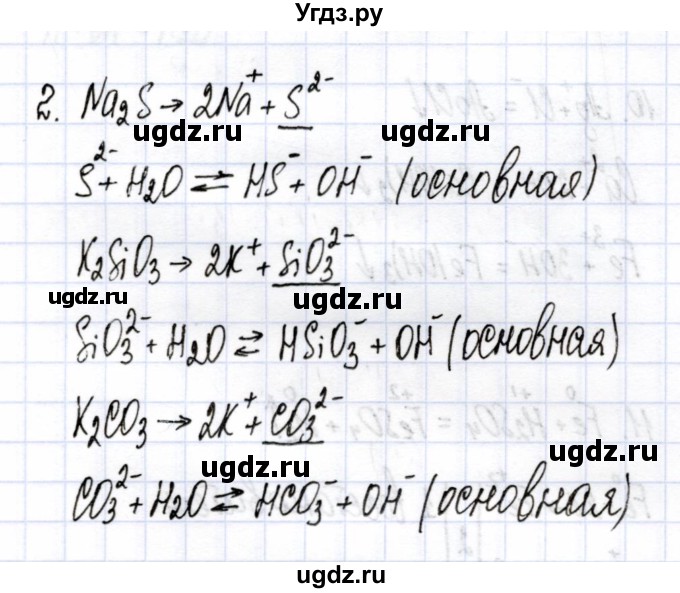 Угдз.ру
2. Na₂S → 2Na⁺ + S²⁻
ugdz.ru ugdz.ru
S²⁻ + H₂O ⇄ HS⁻ + OH⁻ (основная)
K₂SiO₃ → 2K⁺ + SiO₃²⁻
ugdz.ru ugdz.ru
SiO₃²⁻ + H₂O ⇄ HSiO₃⁻ + OH⁻ (основная)
K₂CO₃ → 2K⁺ + CO₃²⁻
ugdz.ru ugdz.ru
CO₃²⁻ + H₂O ⇄ HCO₃⁻ + OH⁻ (основная)
ugdz.ru